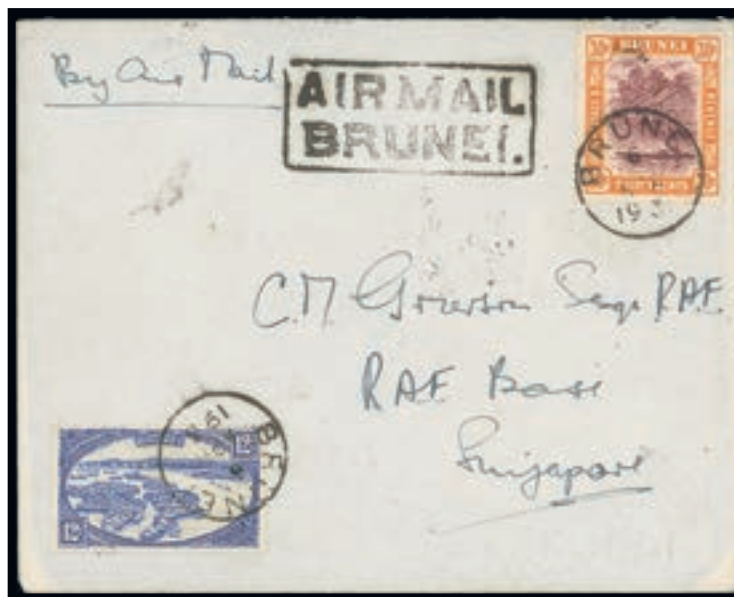 By Air Mail
AIR MAIL
BRUNEI.
BRUNEI
BRUNE
19
C.M. Grierson RAF
RAF Base
Singapore
BRUNE
12
12